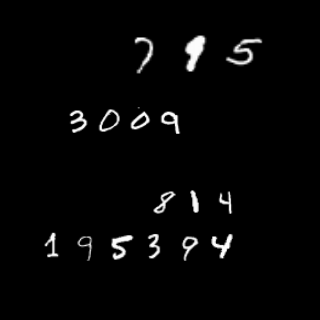 795
3009
814
195394